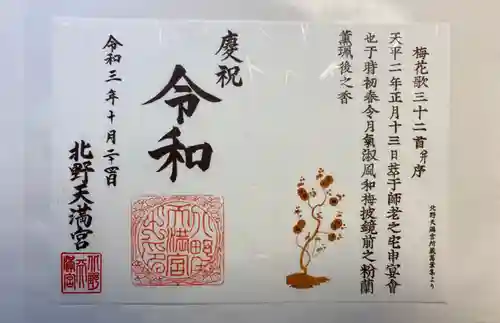 梅花歌三十二首并序
天平二年正月十三日萃于師老之宅申宴會
也于時初春令月氣淑風和梅披鏡前之粉蘭
薫珮後之香
北野天満宮所蔵萬葉集より
慶祝
令和
令和三年十月二十四日
北野天満宮